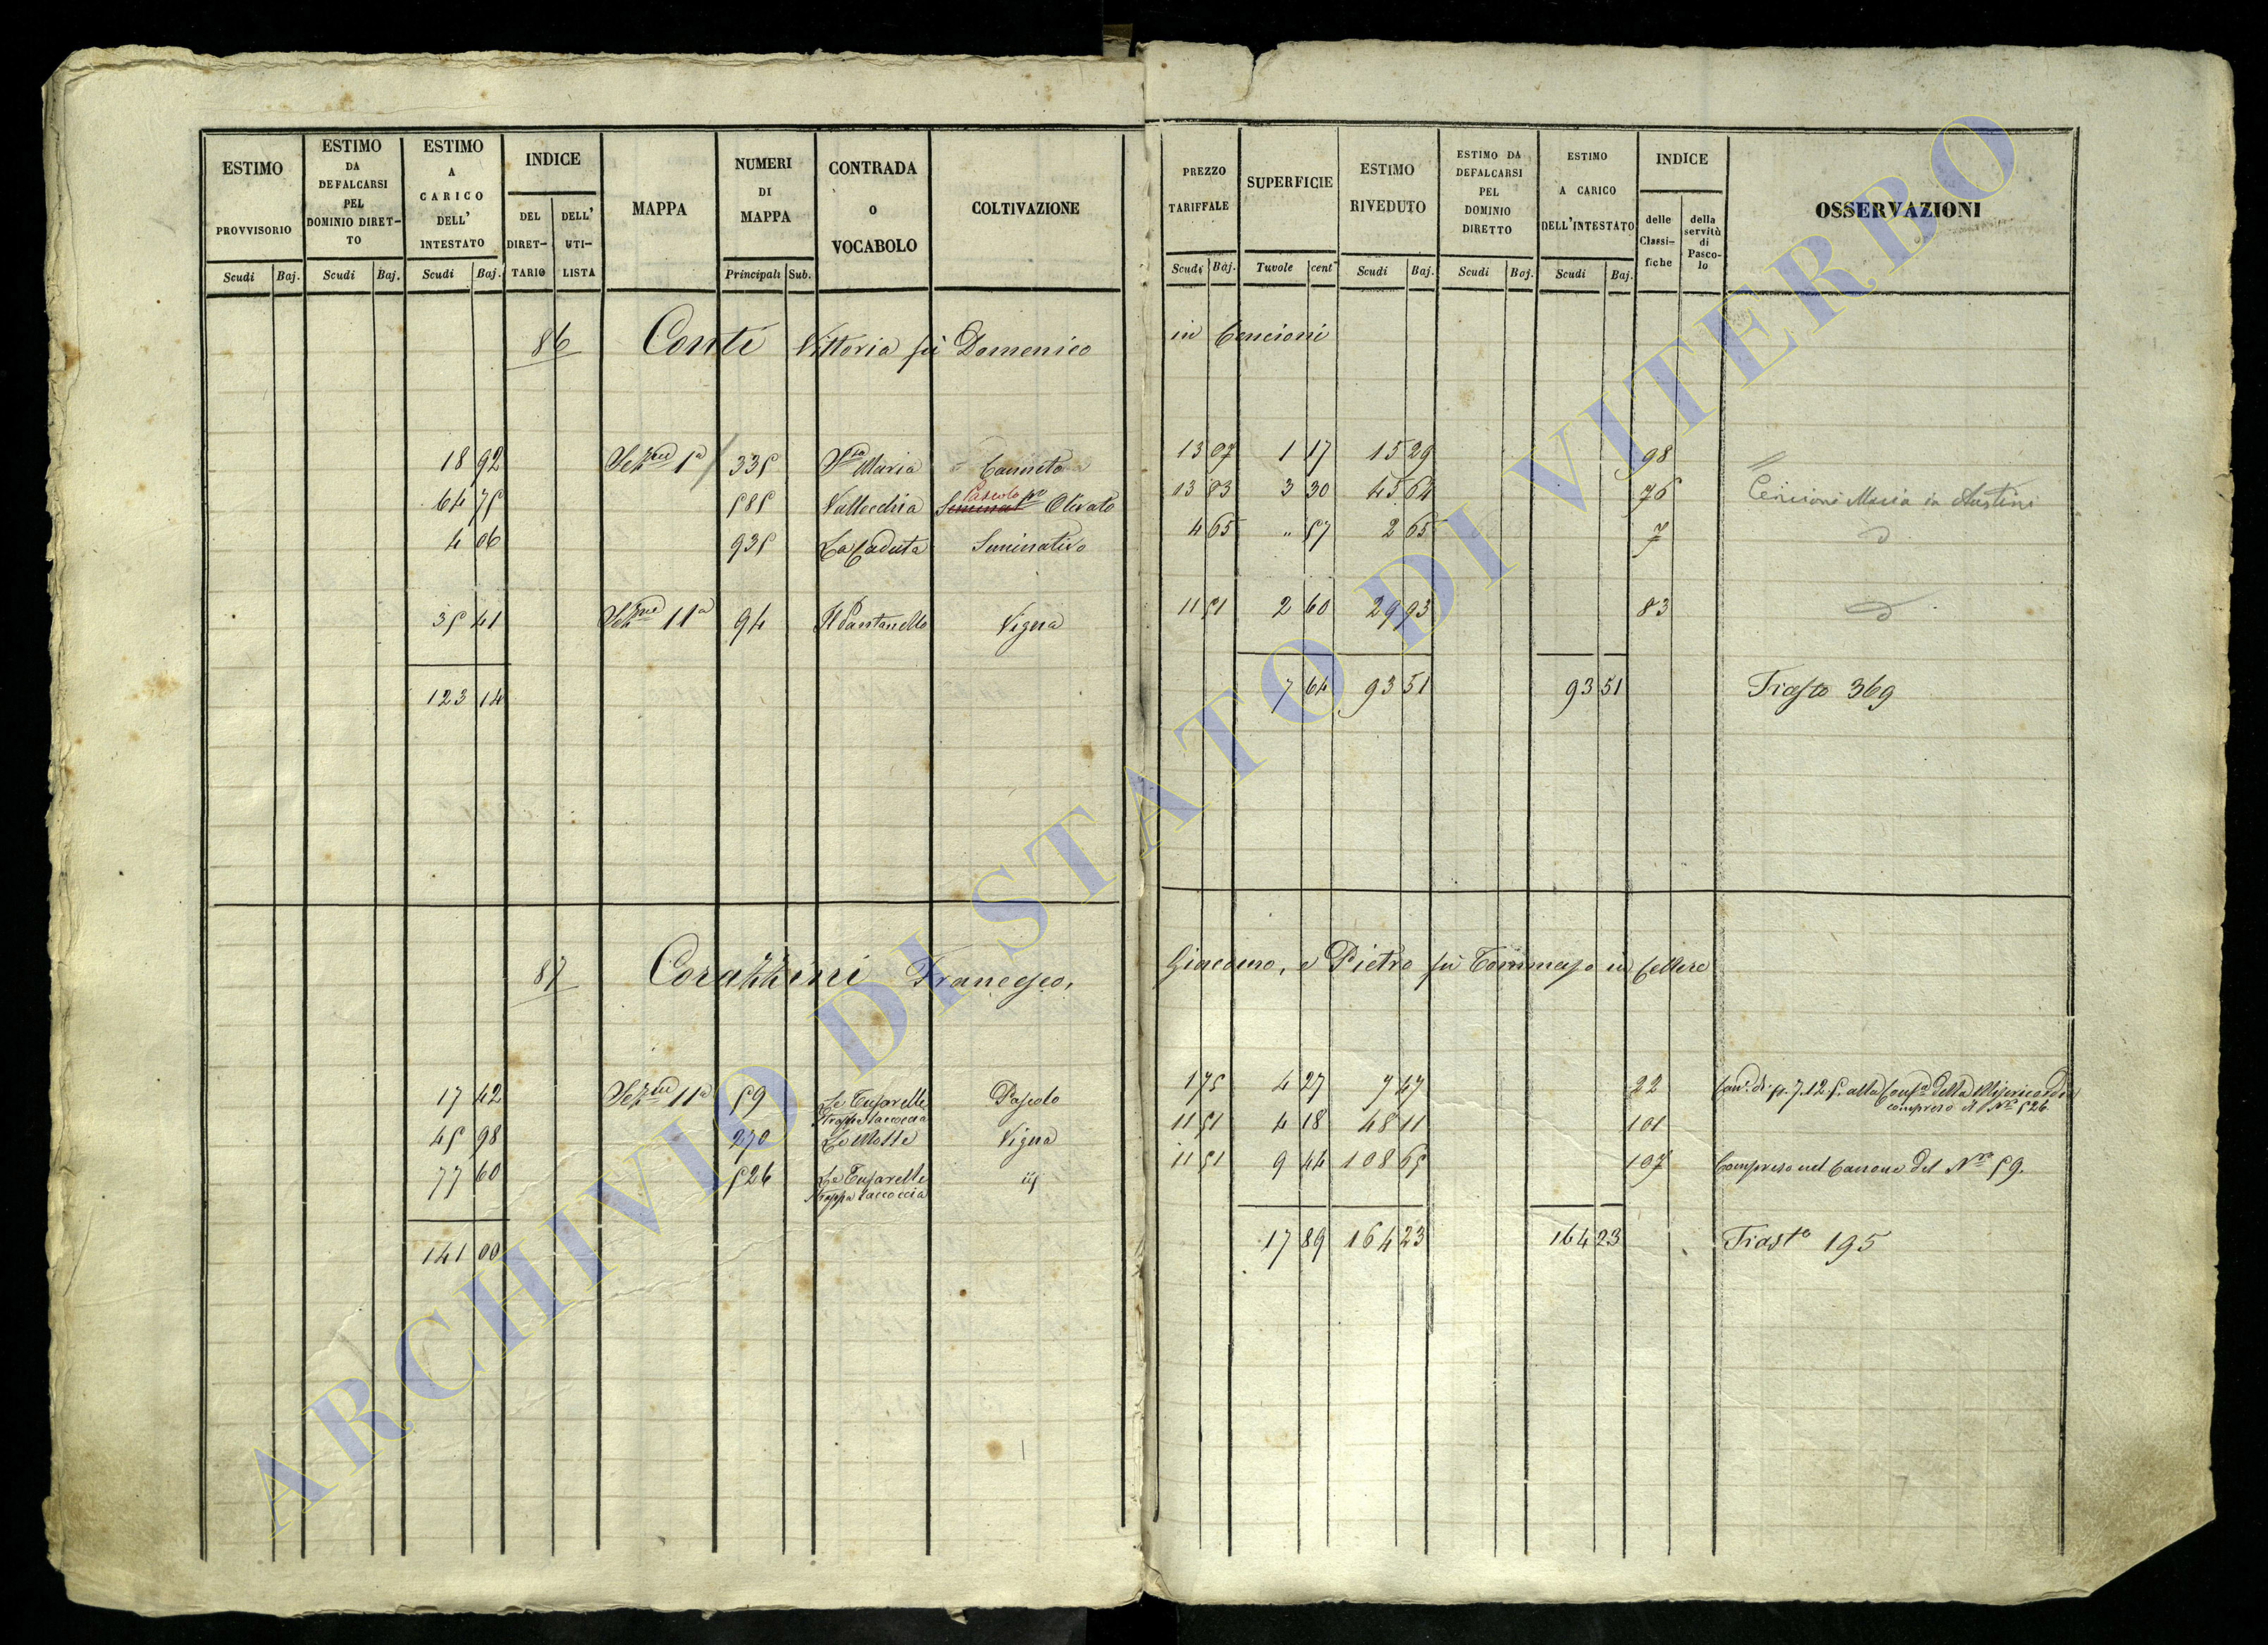 ESTIMO PROVVISORIO
Scudi Baj.
ESTIMO DA DEFALCARSI PEL DOMINIO DIRET-TO
Scudi Baj.
ESTIMO A CARICO DELL' INTESTATO
Scudi Baj.
INDICE
DEL DIRET-TARIO
DELL' UTI-LISTA
MAPPA
NUMERI DI MAPPA
Principali Sub.
CONTRADA O VOCABOLO
COLTIVAZIONE
PREZZO TARIFFALE
Scudi Baj.
SUPERFICIE
Tavole cent
ESTIMO RIVEDUTO
Scudi Baj.
ESTIMO DA DEFALCARSI PEL DOMINIO DIRETTO
Scudi Baj.
ESTIMO A CARICO DELL'INTESTATO
Scudi Baj.
INDICE
delle Classi-fiche
della servitù di Pasco-lo
OSSERVAZIONI
86 Conti Vittoria fù Domenico in Cencioni
18 92 Sezne 1a 335 Sta Maria Canneto 13 07 1 17 15 29 98
64 75 585 Vallecchia Seminato Pascolo po Olivato 13 83 3 30 45 64 76 Cencioni Maria in Austini
4 06 935 La Caduta Seminativo 4 65 " 57 2 65 7 D
35 41 Sezne 11a 94 Il Pantanello Vigna 11 51 2 60 29 93 83 D
123 14 7 64 93 51 93 51 Trasto 369
87 Corazzini Francesco, Giacomo, e Pietro fù Tommaso in Cellere
17 42 Sezne 11a 59 Le Tufarelle Pascolo 1 75 4 27 7 47 22 Cane di s. 7.12.5. alla Confa della Misericordia
Strappa Saccoccia compreso il No 526
45 98 270 Le Motte Vigna 11 51 4 18 48 11 101
77 60 526 Le Tufarelle Strappa saccoccia id 11 51 9 44 108 65 107 Compreso nel Canone del No 59.
141 00 17 89 164 23 164 23 Trasto 195
ARCHIVIO DI STATO DI VITERBO